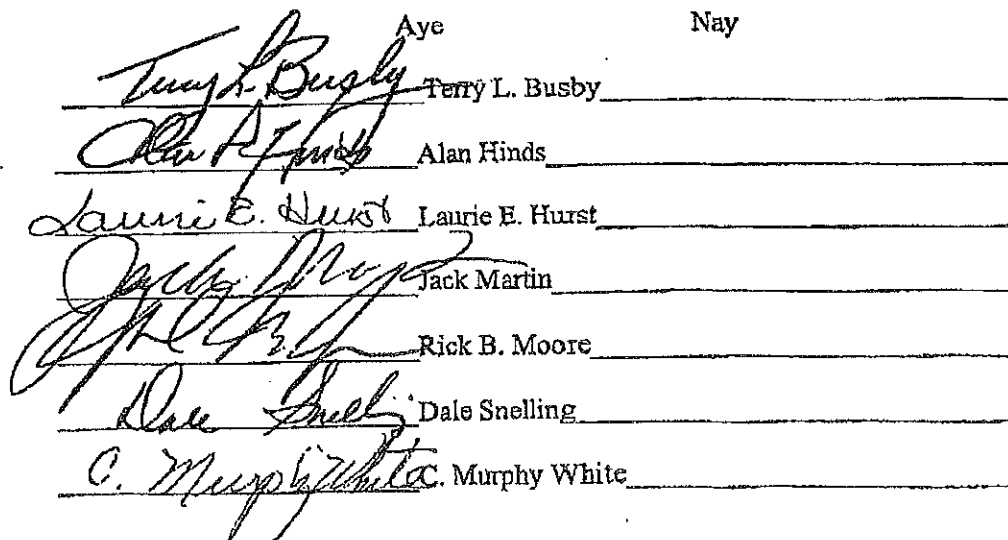 Aye Nay
Terry L. Busby Terry L. Busby
Alan Hinds Alan Hinds
Laurie E. Hurst Laurie E. Hurst
Jack Martin
Rick B. Moore
Dale Snelling Dale Snelling
C. Murphy White C. Murphy White